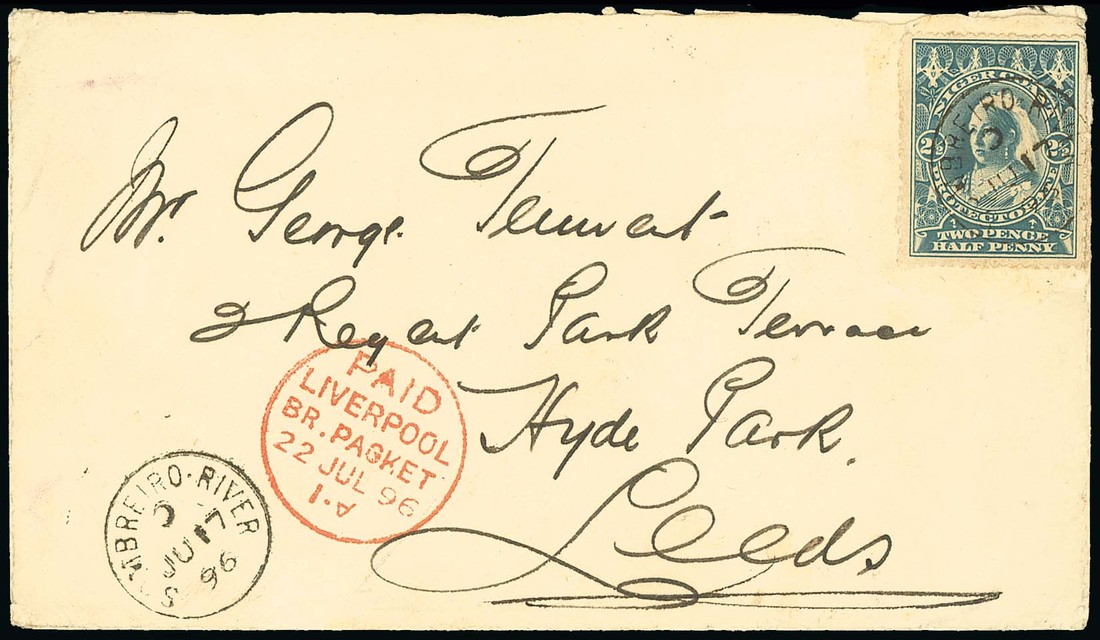 NIGER COAST
PROTECTORATE
2½ 2½
TWO PENCE
HALF PENNY
Mr. George Tennent
2 Regent Park Terrace
Hyde Park.
Leeds
PAID
LIVERPOOL
BR. PACKET
22 JUL 96
SOMBREIRO-RIVER
JU
96